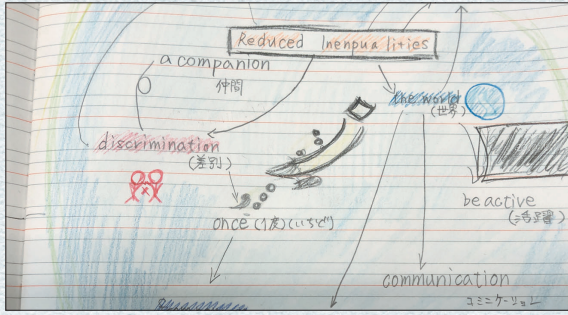 Reduced Inenpualities
a companion
仲間
the world
(世界)
discrimination
(差別)
be active
(活躍)
once (1度)(いちど)
communication
コミニケーション